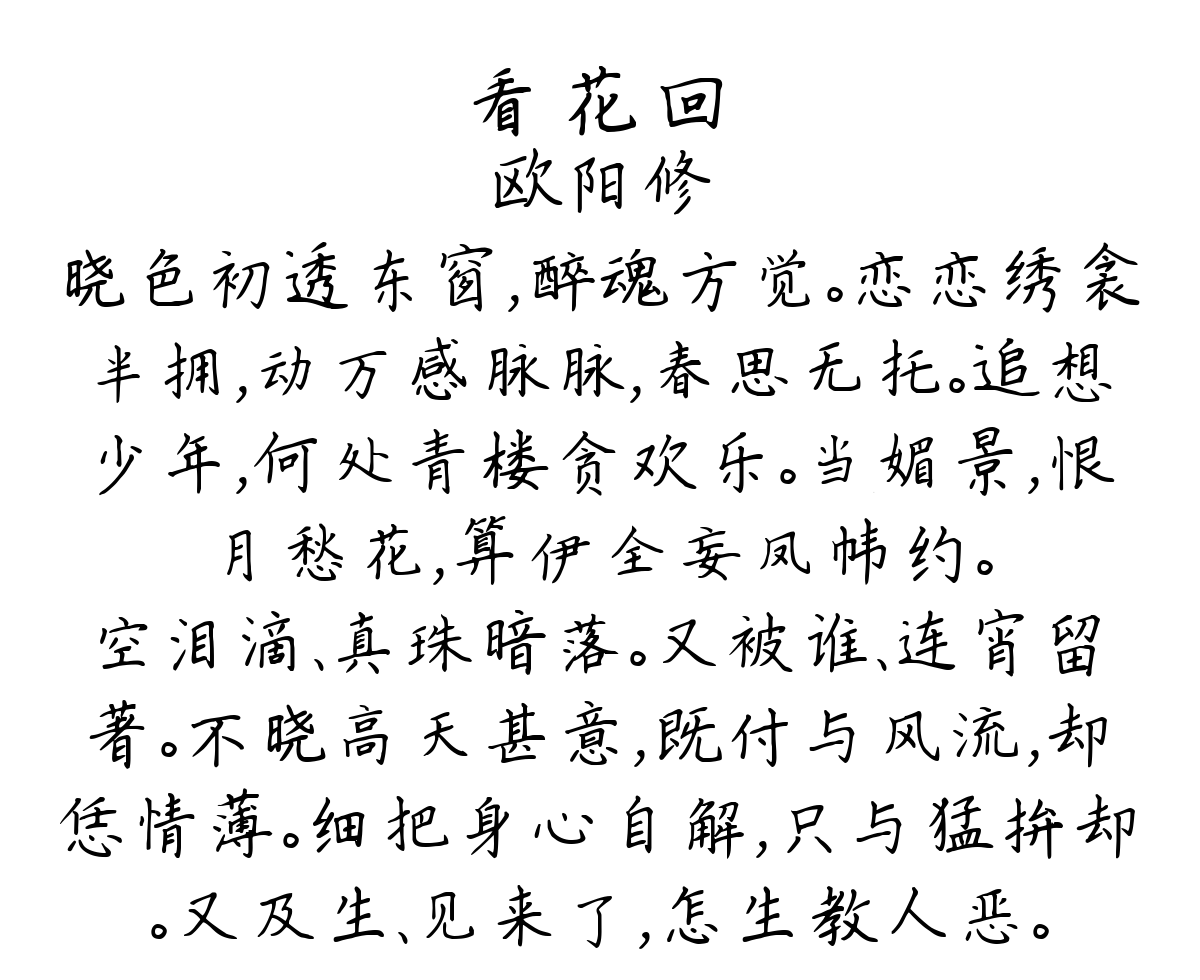 看花回
欧阳修
晓色初透东窗,醉魂方觉。恋恋绣衾
半拥,动万感脉脉,春思无托。追想
少年,何处青楼贪欢乐。当媚景,恨
月愁花,算伊全妄凤帏约。
空泪滴、真珠暗落。又被谁、连宵留
著。不晓高天甚意,既付与风流,却
恁情薄。细把身心自解,只与猛拚却
。又及生、见来了,怎生教人恶。